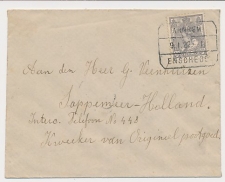 ARNHEM
ENSCHEDE
Aan den Heer G. Veenhuizen
Sappemeer - Holland.
Interc. Telefoon No 448
Kweeker van Origineel pootgoed